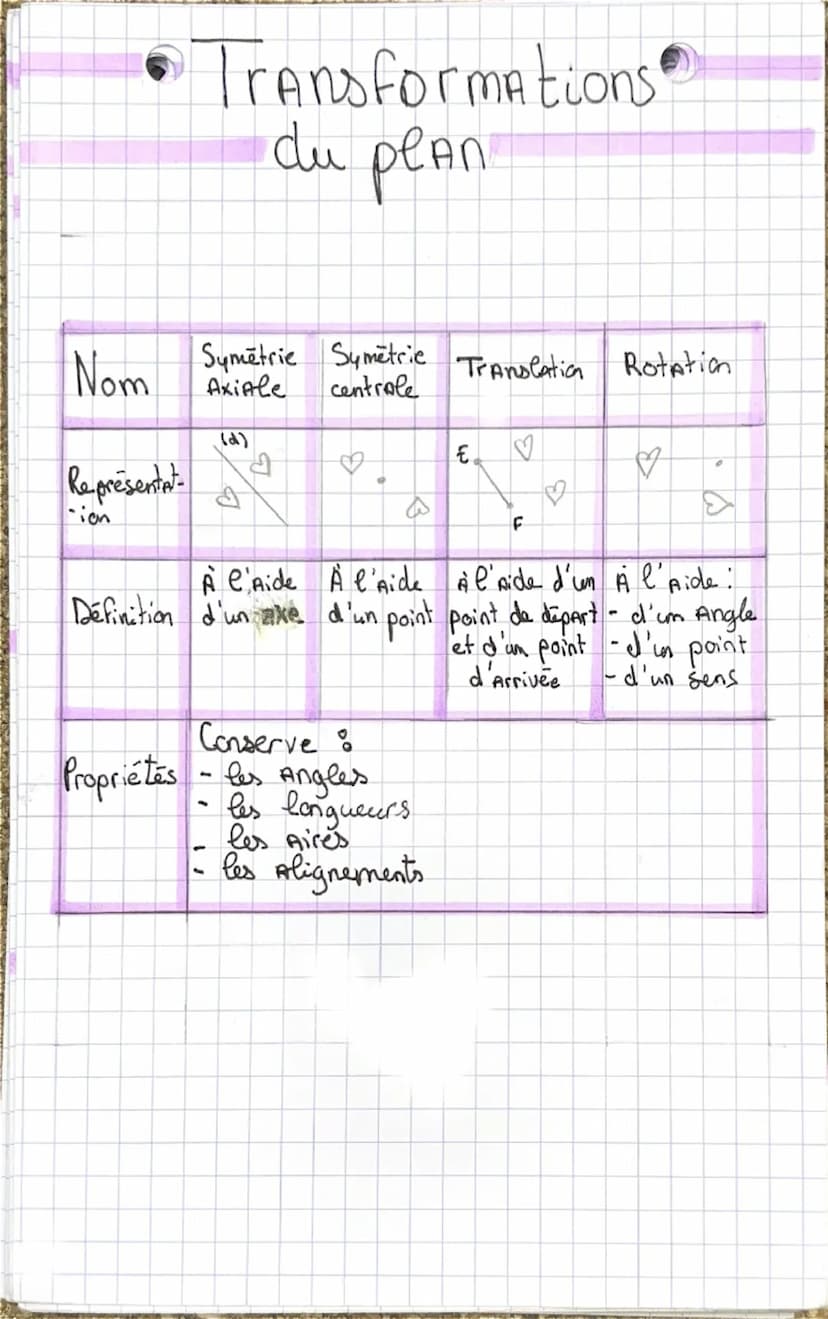 Transformations
du plan
Nom
Symétrie
Axiale
Symétrie
centrale
Translation
Rotation
Représentat-
-ion
(d)
E
F
Définition
À l'Aide
d'un axe
À l'Aide
d'un point
À l'Aide d'un
point de départ
et d'un point
d'Arrivée
À l'Aide :
- d'un Angle
- d'un point
- d'un sens
Propriétés
Conserve :
- les Angles
- les longueurs
- les Aires
- les Alignements